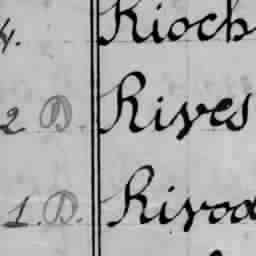 4. Rioch
2. D. Rives
1. D. Rivoa